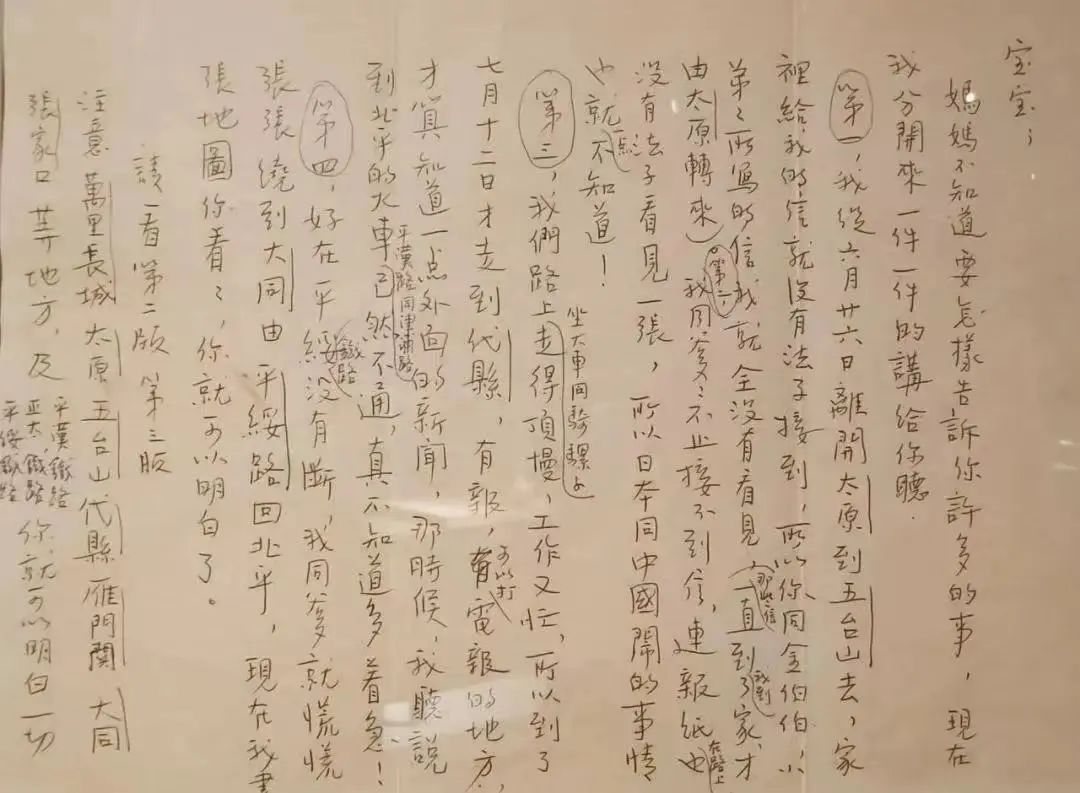 宝宝；
媽媽不知道要怎樣告訴你許多的事，現在
我分開來一件一件的講給你聽．
第一，我從六月廿六日離開太原到五台山去，家
裡給我的信就没有法子接到，所以你同金伯伯、小
弟々所寫的信我就全没有看見（那些信一直到我到了家，才
由太原轉來）。第二，我同爹々不止接不到信，連報紙也在路上
没有法子看見一張，所以日本同中國鬧的事情
也就一点不知道！
第三，我們路上坐大車同騎騾子走得頂慢，工作又忙，所以到了
七月十二日才走到代縣，有報，可以打電報的地方，
才算知道一点外面的新聞，那時候，我聽説
到北平的火車平漢路同津浦路已然不通，真不知道多着急！
第四，好在平綏鐵路没有斷，我同爹々就慌慌
張張繞到大同由平綏路回北平，現在我畫
張地圖你看々，你就可以明白了。
請一看第二版 第三版
注意萬里長城 太原 五台山 代縣 雁門關 大同
張家口等地方，及平漢鐵路 正太鐵路 平綏鐵路 你就可以明白一切